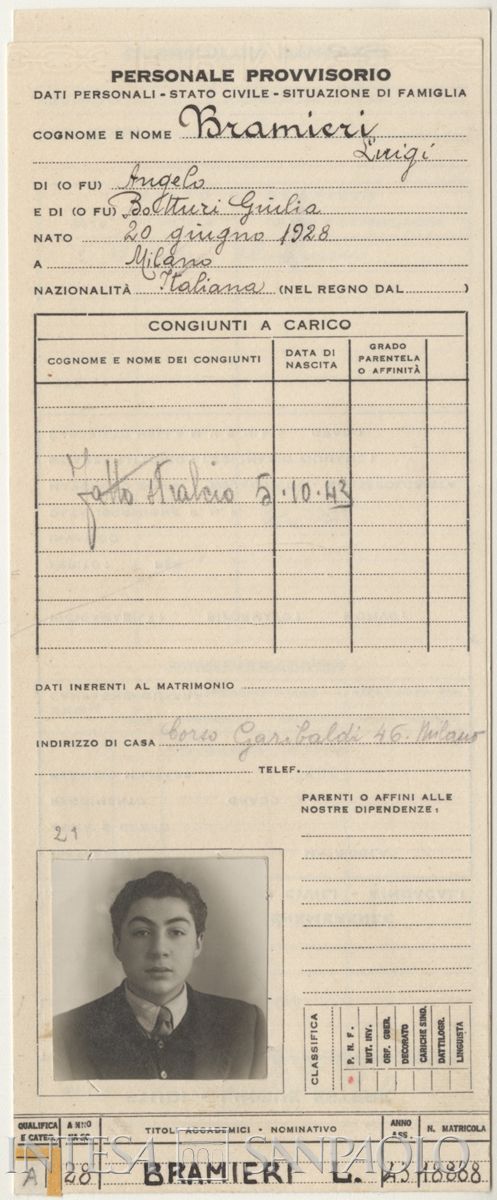 PERSONALE PROVVISORIO
DATI PERSONALI - STATO CIVILE - SITUAZIONE DI FAMIGLIA
COGNOME E NOME Bramieri
Luigi
DI (O FU) Angelo
E DI (O FU) Botturi Giulia
NATO 20 giugno 1928
A Milano
NAZIONALITÀ Italiana (NEL REGNO DAL )
CONGIUNTI A CARICO
COGNOME E NOME DEI CONGIUNTI DATA DI NASCITA GRADO PARENTELA O AFFINITÀ
Fatto stralcio 5.10.43
DATI INERENTI AL MATRIMONIO
INDIRIZZO DI CASA Corso Garibaldi 46. Milano
TELEF.
PARENTI O AFFINI ALLE
NOSTRE DIPENDENZE:
21
CLASSIFICA
P. N. F.
MUT. INV.
ORF. GUER.
DECORATO
CARICHE SIND.
DATTILOGR.
LINGUISTA
QUALIFICA E CATEG. ANNO NASC. TITOLI ACCADEMICI - NOMINATIVO ANNO ASS. N. MATRICOLA
A 28 BRAMIERI L. 43 18868
INTESA SANPAOLO